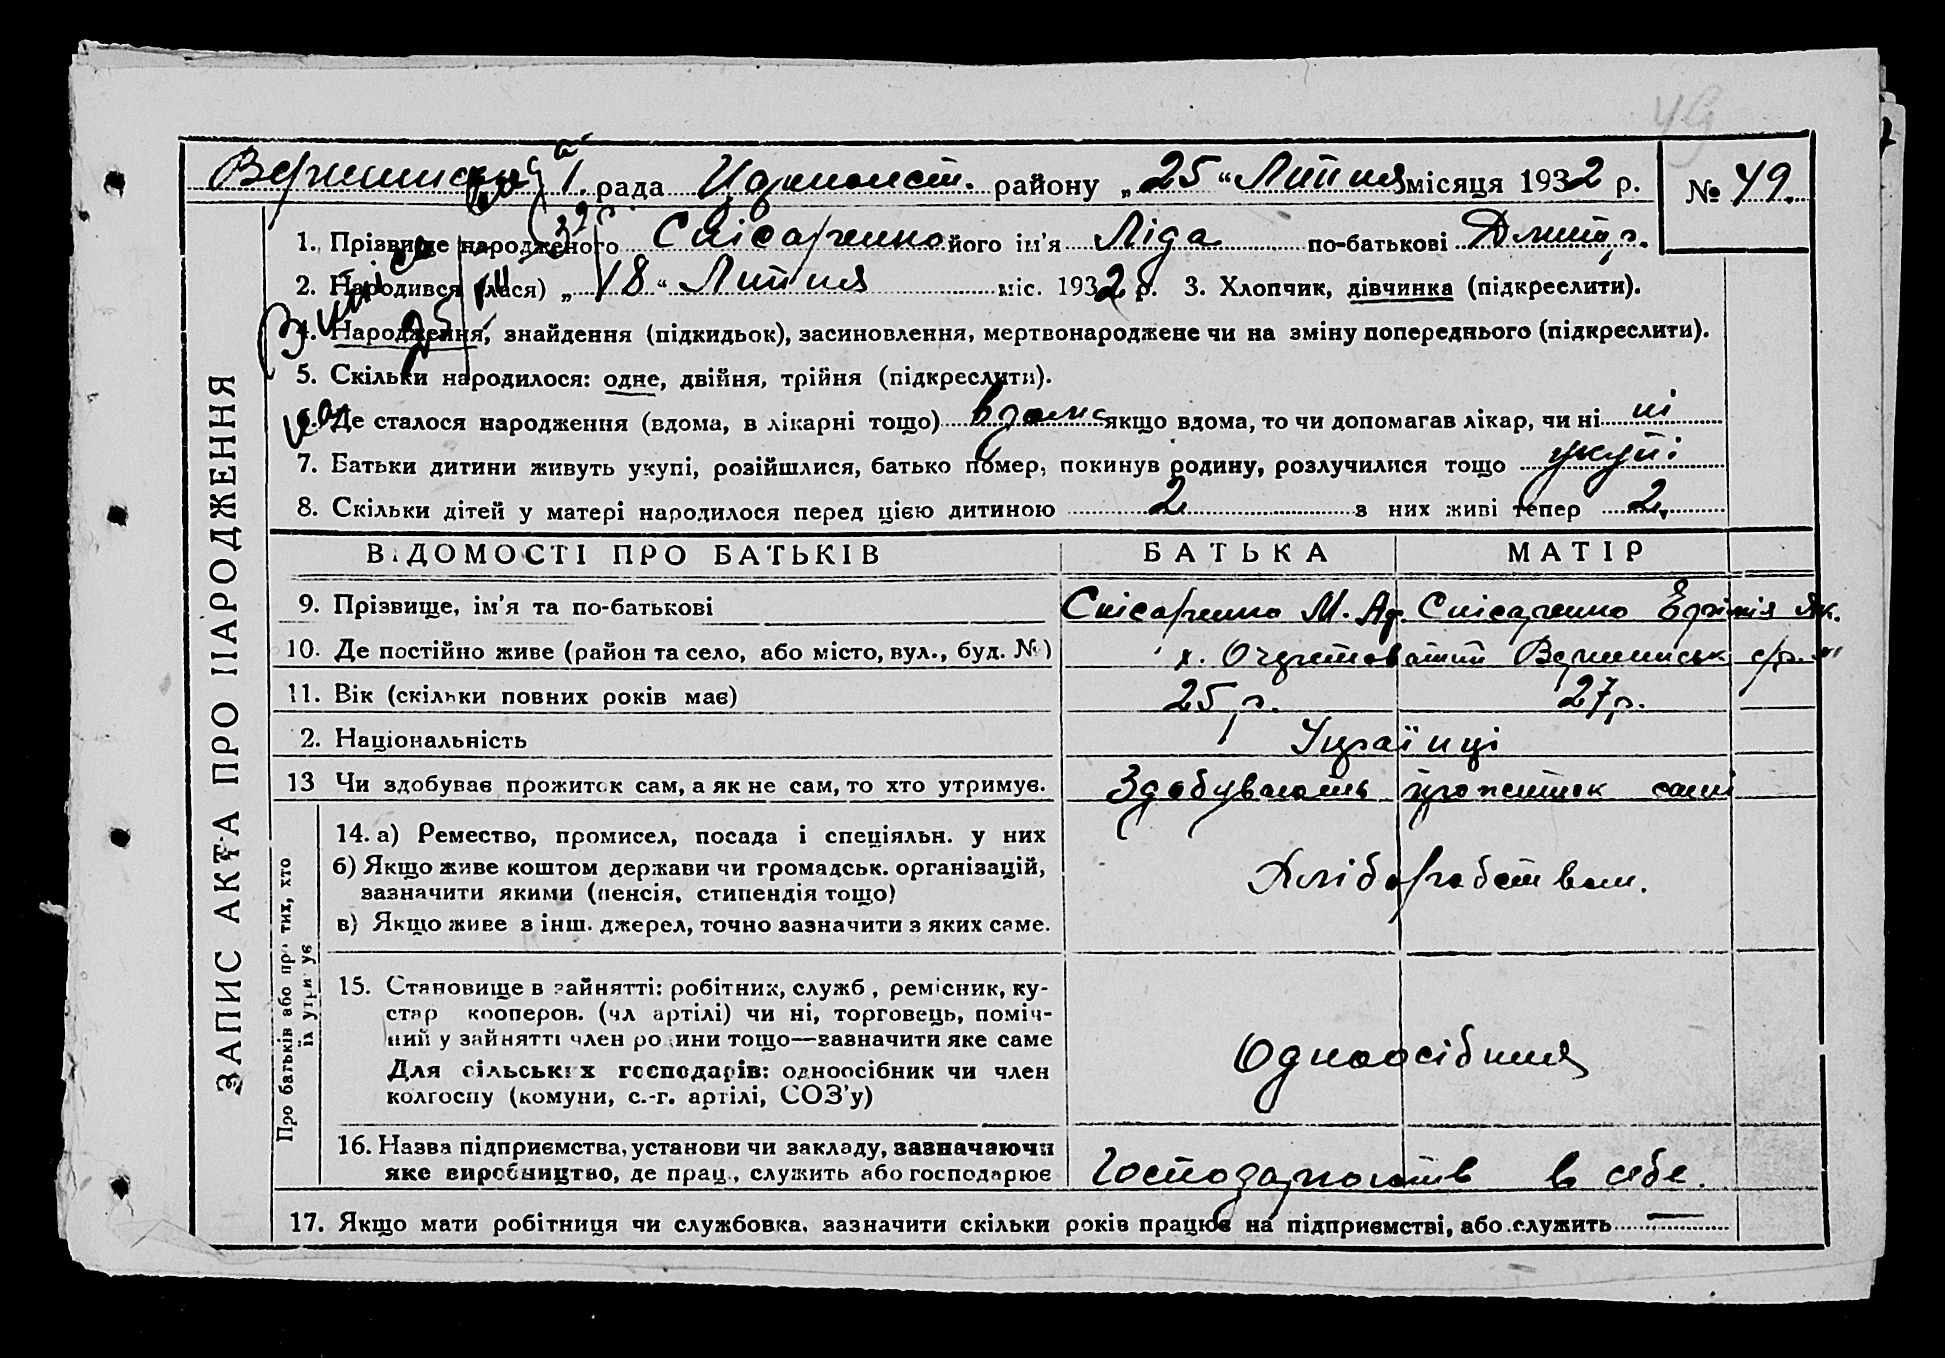 49
рада района „25“ Липня місяця 1932 р. № 49.
1. Прізвище народженого Слісаренко його ім'я Ліда по-батькові Дмитр.
2. Народився (лася) „18“ Липня міс. 1932 р. 3. Хлопчик, дівчинка (підкреслити).
4. Народження, знайдення (підкидьок), засиновлення, мертвонароджене чи на зміну попереднього (підкреслити).
5. Скільки народилося: одне, двійня, трійня (підкреслити).
Де сталося народження (вдома, в лікарні тощо) вдома якщо вдома, то чи допомагав лікар, чи ні ні
7. Батьки дитини живуть укупі, розійшлися, батько помер, покинув родину, розлучилися тощо укупі
8. Скільки дітей у матері народилося перед цією дитиною 2 з них живі тепер 2.
ЗАПИС АКТА ПРО НАРОДЖЕННЯ
ВІДОМОСТІ ПРО БАТЬКІВ БАТЬКА МАТІР
9. Прізвище, ім'я та по-батькові Слісаренко Слісаренко Як.
10. Де постійно живе (район та село, або місто, вул., буд. №) х.
11. Вік (скільки повних років має) 25 р. 27 р.
2. Національність Українці
13 Чи здобуває прожиток сам, а як не сам, то хто утримує. Здобувають прожиток самі
Про батьків або про тих, хто
їх утримує
14. а) Ремество, промисел, посада і спеціяльн. у них
б) Якщо живе коштом держави чи громадськ. організацій,
зазначити якими (пенсія, стипендія тощо)
в) Якщо живе з інш. джерел, точно зазначити з яких саме.
Хліборобством.
15. Становище в зайнятті: робітник, служб, ремісник, ку-
стар кооперов. (чл артілі) чи ні, торговець, поміч-
ний у зайнятті член родини тощо—зазначити яке саме
Для сільських господарів: одноосібник чи член
колгоспу (комуни, с.-г. артілі, СОЗ'у)
Одноосібник
16. Назва підприємства, установи чи закладу, зазначаючи
яке виробництво, де прац., служить або господарює
Господарюють в себе.
17. Якщо мати робітниця чи службовка, зазначити скільки років працює на підприємстві, або служить —